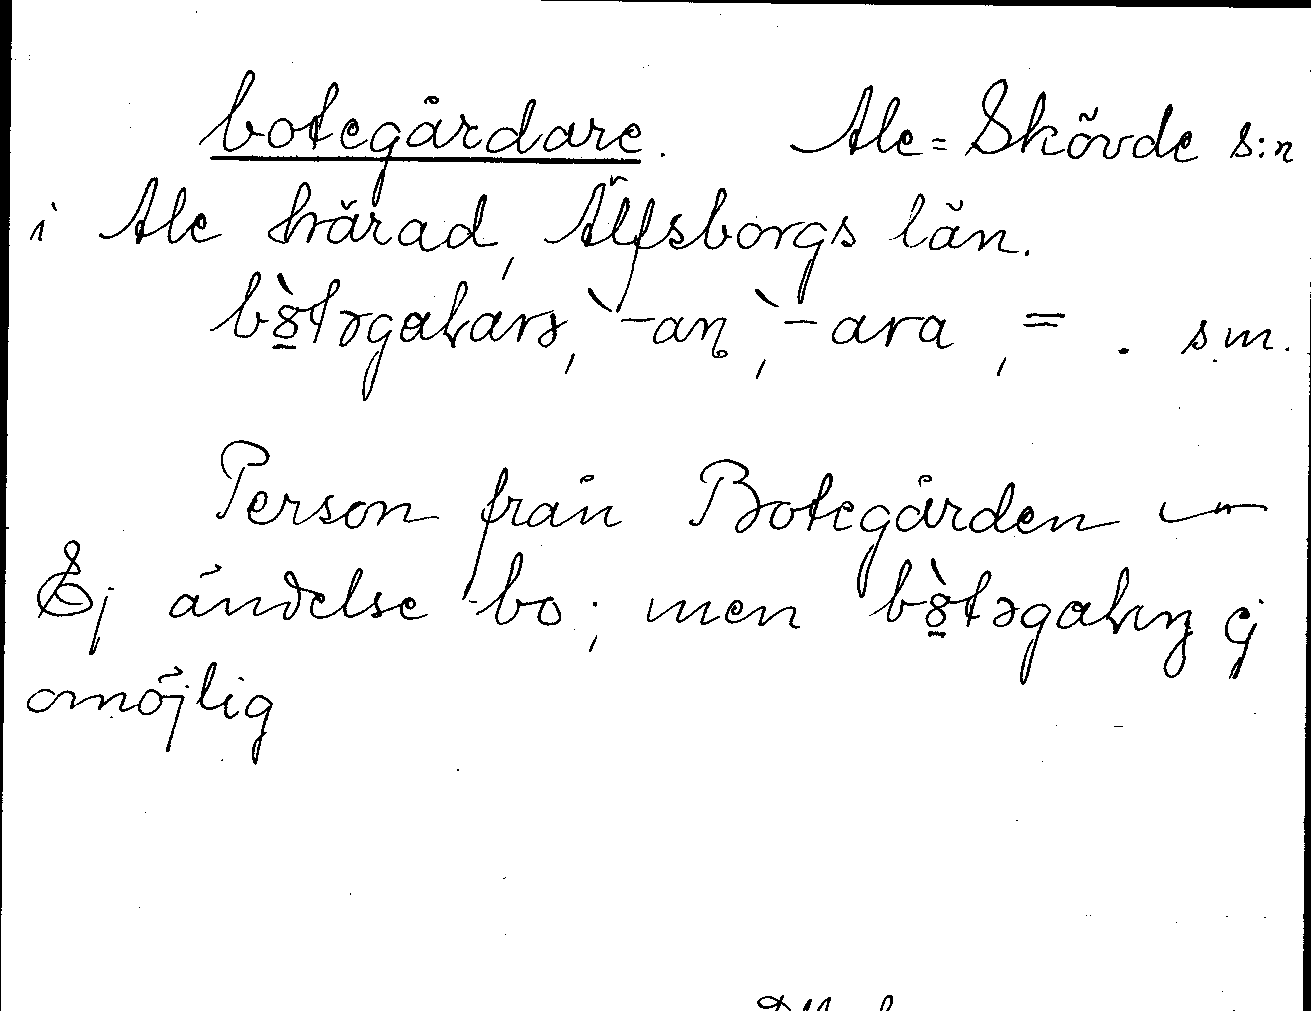 botegårdare. Ale=Skövde s:n
i Ale härad, Älfsborgs län.
-an, -ara, =. s.m.
Person från Botegården
Ej ändelse -bo; men ej
omöjlig